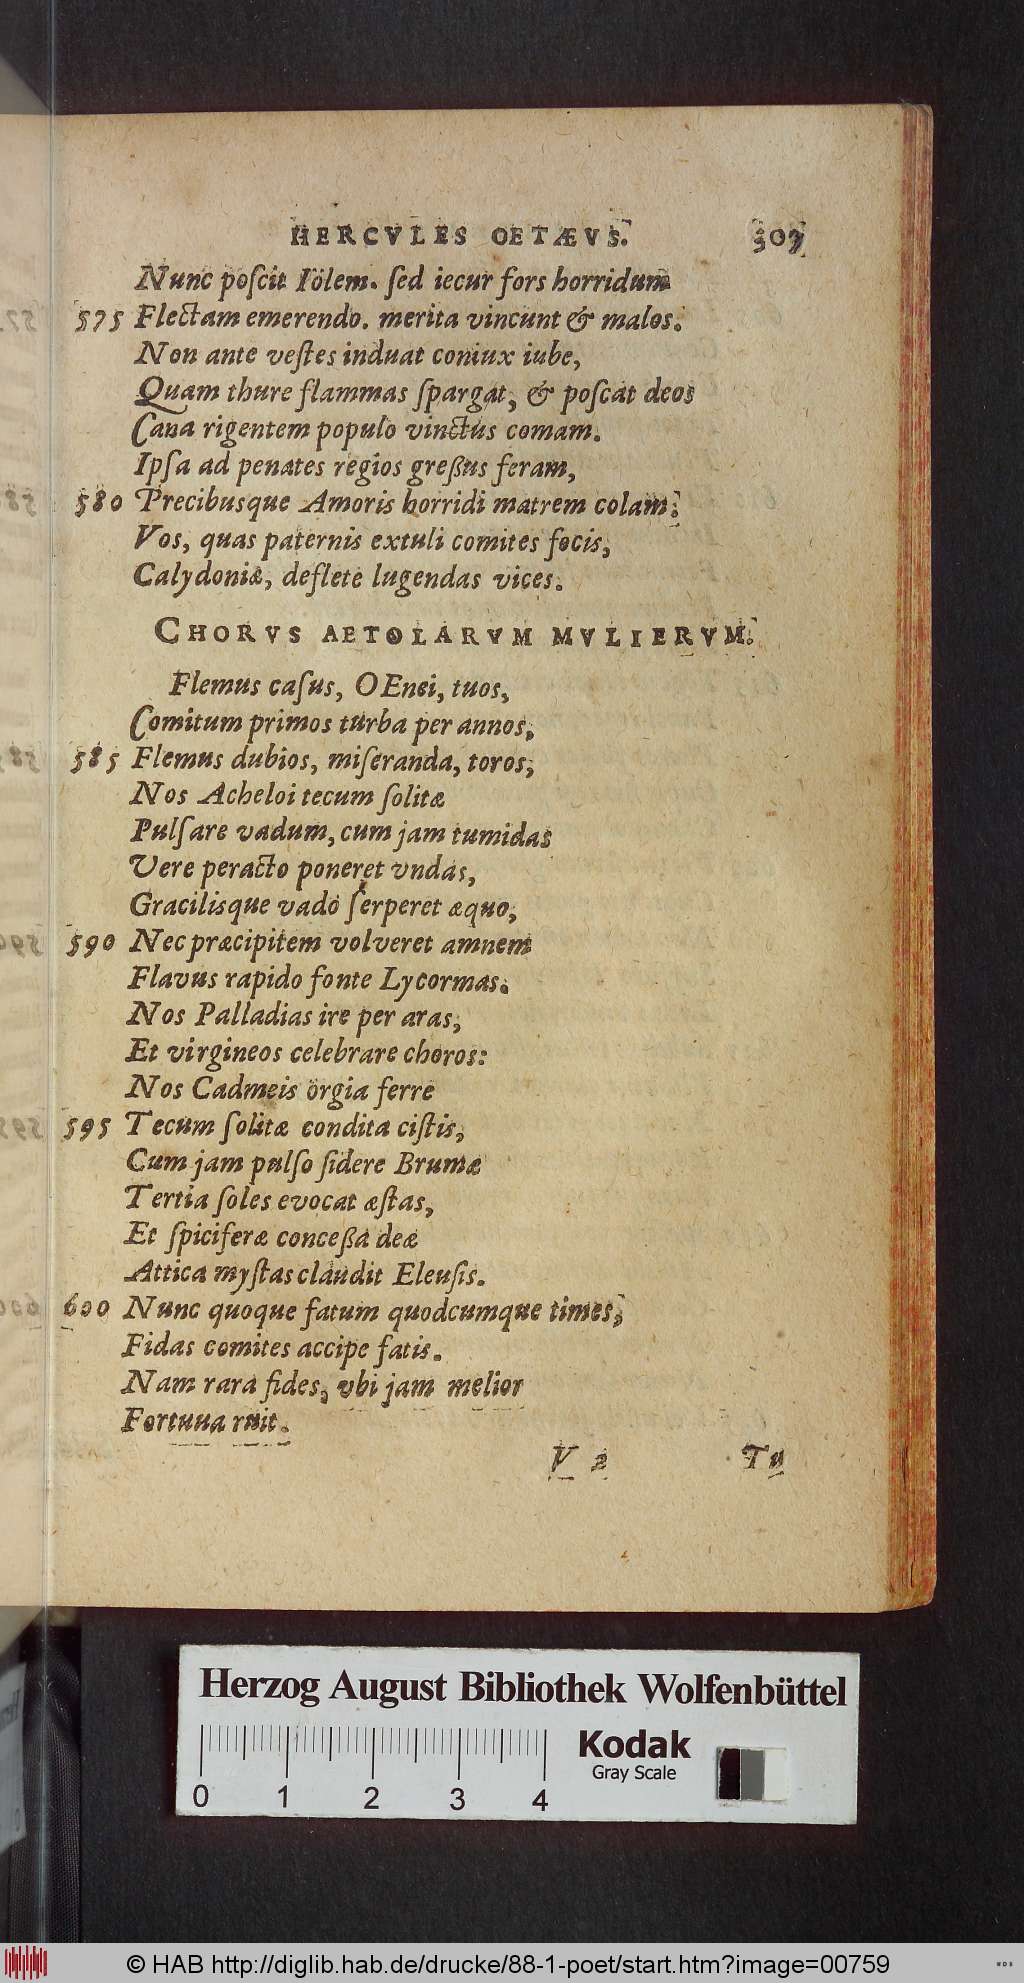 HERCVLES OETÆVS. 307
Nunc poſcit Iölem. ſed iecur fors horridum
575 Flectam emerendo. merita vincunt & malos.
Non ante veſtes induat coniux iube,
Quam thure flammas ſpargat, & poſcat deos
Cana rigentem populo vinctus comam.
Ipſa ad penates regios greßus feram,
580 Precibusque Amoris horridi matrem colam.
Vos, quas paternis extuli comites focis,
Calydoniæ, deflete lugendas vices.
CHORVS AETOLARVM MVLIERVM.
Flemus caſus, OEnei, tuos,
Comitum primos turba per annos,
585 Flemus dubios, miſeranda, toros;
Nos Acheloi tecum ſolitæ
Pulſare vadum, cum jam tumidas
Vere peracto poneret vndas,
Gracilisque vado ſerperet æquo,
590 Nec præcipitem volveret amnem
Flavus rapido fonte Lycormas.
Nos Palladias ire per aras,
Et virgineos celebrare choros:
Nos Cadmeis orgia ferre
595 Tecum ſolitæ condita ciſtis,
Cum jam pulſo ſidere Brumæ
Tertia ſoles evocat æſtas,
Et ſpiciferæ conceßa deæ
Attica myſtas claudit Eleuſis.
600 Nunc quoque fatum quodcumque times,
Fidas comites accipe fatis.
Nam rara fides, vbi jam melior
Fortuua ruit.
V 2 Tu
Herzog August Bibliothek Wolfenbüttel
Kodak
Gray Scale
0 1 2 3 4
© HAB http://diglib.hab.de/drucke/88-1-poet/start.htm?image=00759